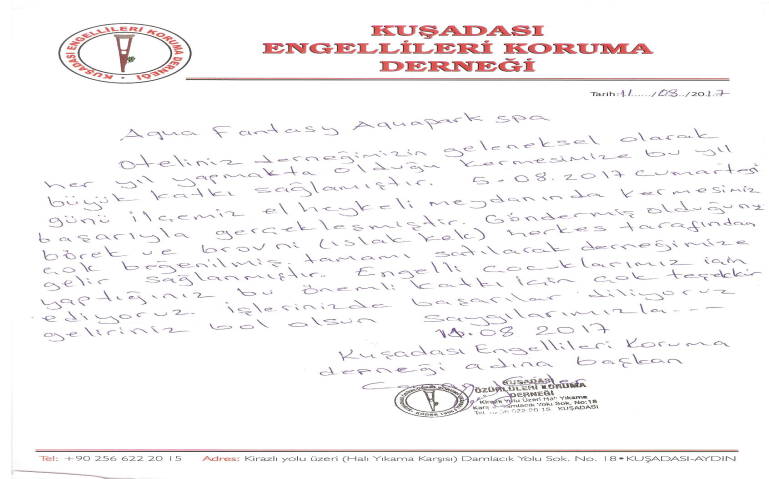 KUŞADASI ENGELLİLERİ KORUMA DERNEĞİ
KUŞADASI
ENGELLİLERİ KORUMA
DERNEĞİ
Tarih:11....../08../2017
Aqua Fantasy Aquapark spa
Oteliniz derneğimizin geleneksel olarak
her yıl yapmakta olduğu kermesimize bu yıl
büyük katkı sağlamıştır. 5-08.2017 cumartesi
günü ilçemiz el heykeli meydanında kermesimiz
başarıyla gerçekleşmiştir. Göndermiş olduğunuz
börek ve brovni (ıslak kek) herkes tarafından
çok beğenilmiş tamamı satılarak derneğimize
gelir sağlanmıştır. Engelli çocuklarımız için
yaptığınız bu önemli katkı için çok teşekkür
ediyoruz. işlerinizde başarılar diliyoruz
geliriniz bol olsun saygılarımızla---
11.08 2017
Kuşadası Engellileri Koruma
derneği adına başkan
KUŞADASI
ÖZÜRLÜLERİ KORUMA
DERNEĞİ
Kirazlı Yolu Üzeri Halı Yıkama
Damlacık Yolu Sok. No:18
622 20 15 KUŞADASI
Tel: +90 256 622 20 15 Adres: Kirazlı yolu üzeri (Halı Yıkama Karşısı) Damlacık Yolu Sok. No. 18 • KUŞADASI-AYDIN